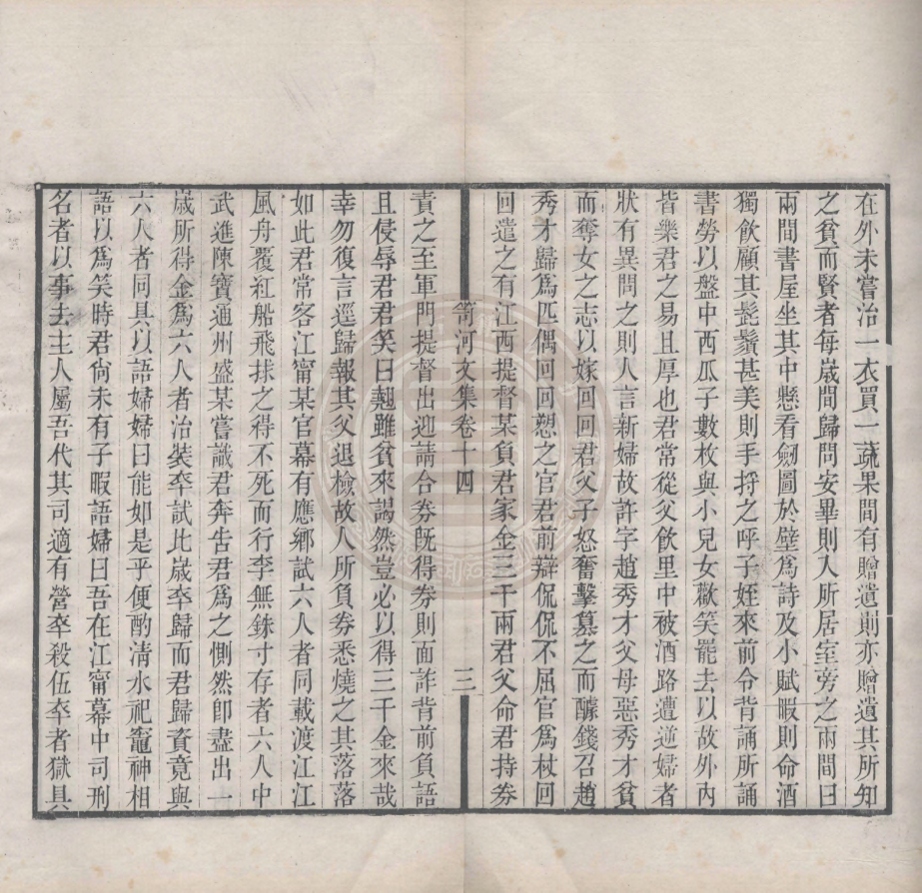 在外未嘗治一衣買一蔬果間有贈遺則亦贈遺其所知
之貧而賢者每歲間歸問安畢則入所居室旁之兩間曰
兩間書屋坐其中懸看劒圖於壁爲詩及小賦暇則命酒
獨飲顧其髭鬚甚美則手捋之呼子姪來前令背誦所誦
書勞以盤中西瓜子數枚與小兒女歡笑罷去以故外內
皆樂君之易且厚也君常從父飲里中被酒路遭逆婦者
狀有異問之則人言新婦故許字趙秀才父母惡秀才貧
而奪女之志以嫁回回君父子怒奮擊墓之而醵錢召趙
秀才歸爲匹偶回回愬之官君前辯侃侃不屈官爲杖回
回遣之有江西提督某負君家金三千兩君父命君持券
笥河文集卷十四 三
責之至軍門提督出迎請合券旣得券則面詐背前負語
且侵辱君君笑曰翹雖貧來謁然豈必以得三千金來哉
幸勿復言逕歸報其父退檢故人所負券悉燒之其落落
如此君常客江甯某官幕有應鄉試六人者同載渡江江
風舟覆紅船飛捄之得不死而行李無銖寸存者六人中
武進陳寶通州盛某嘗識君奔告君爲之惻然卽盡出一
歲所得金爲六人者治裝卒試比歲卒歸而君歸資竟與
六人者同具以語婦婦曰能如是乎便酌淸水祀竈神相
語以爲笑時君尙未有子暇語婦曰吾在江甯幕中司刑
名者以事去主人屬吾代其司適有營卒殺伍卒者獄具